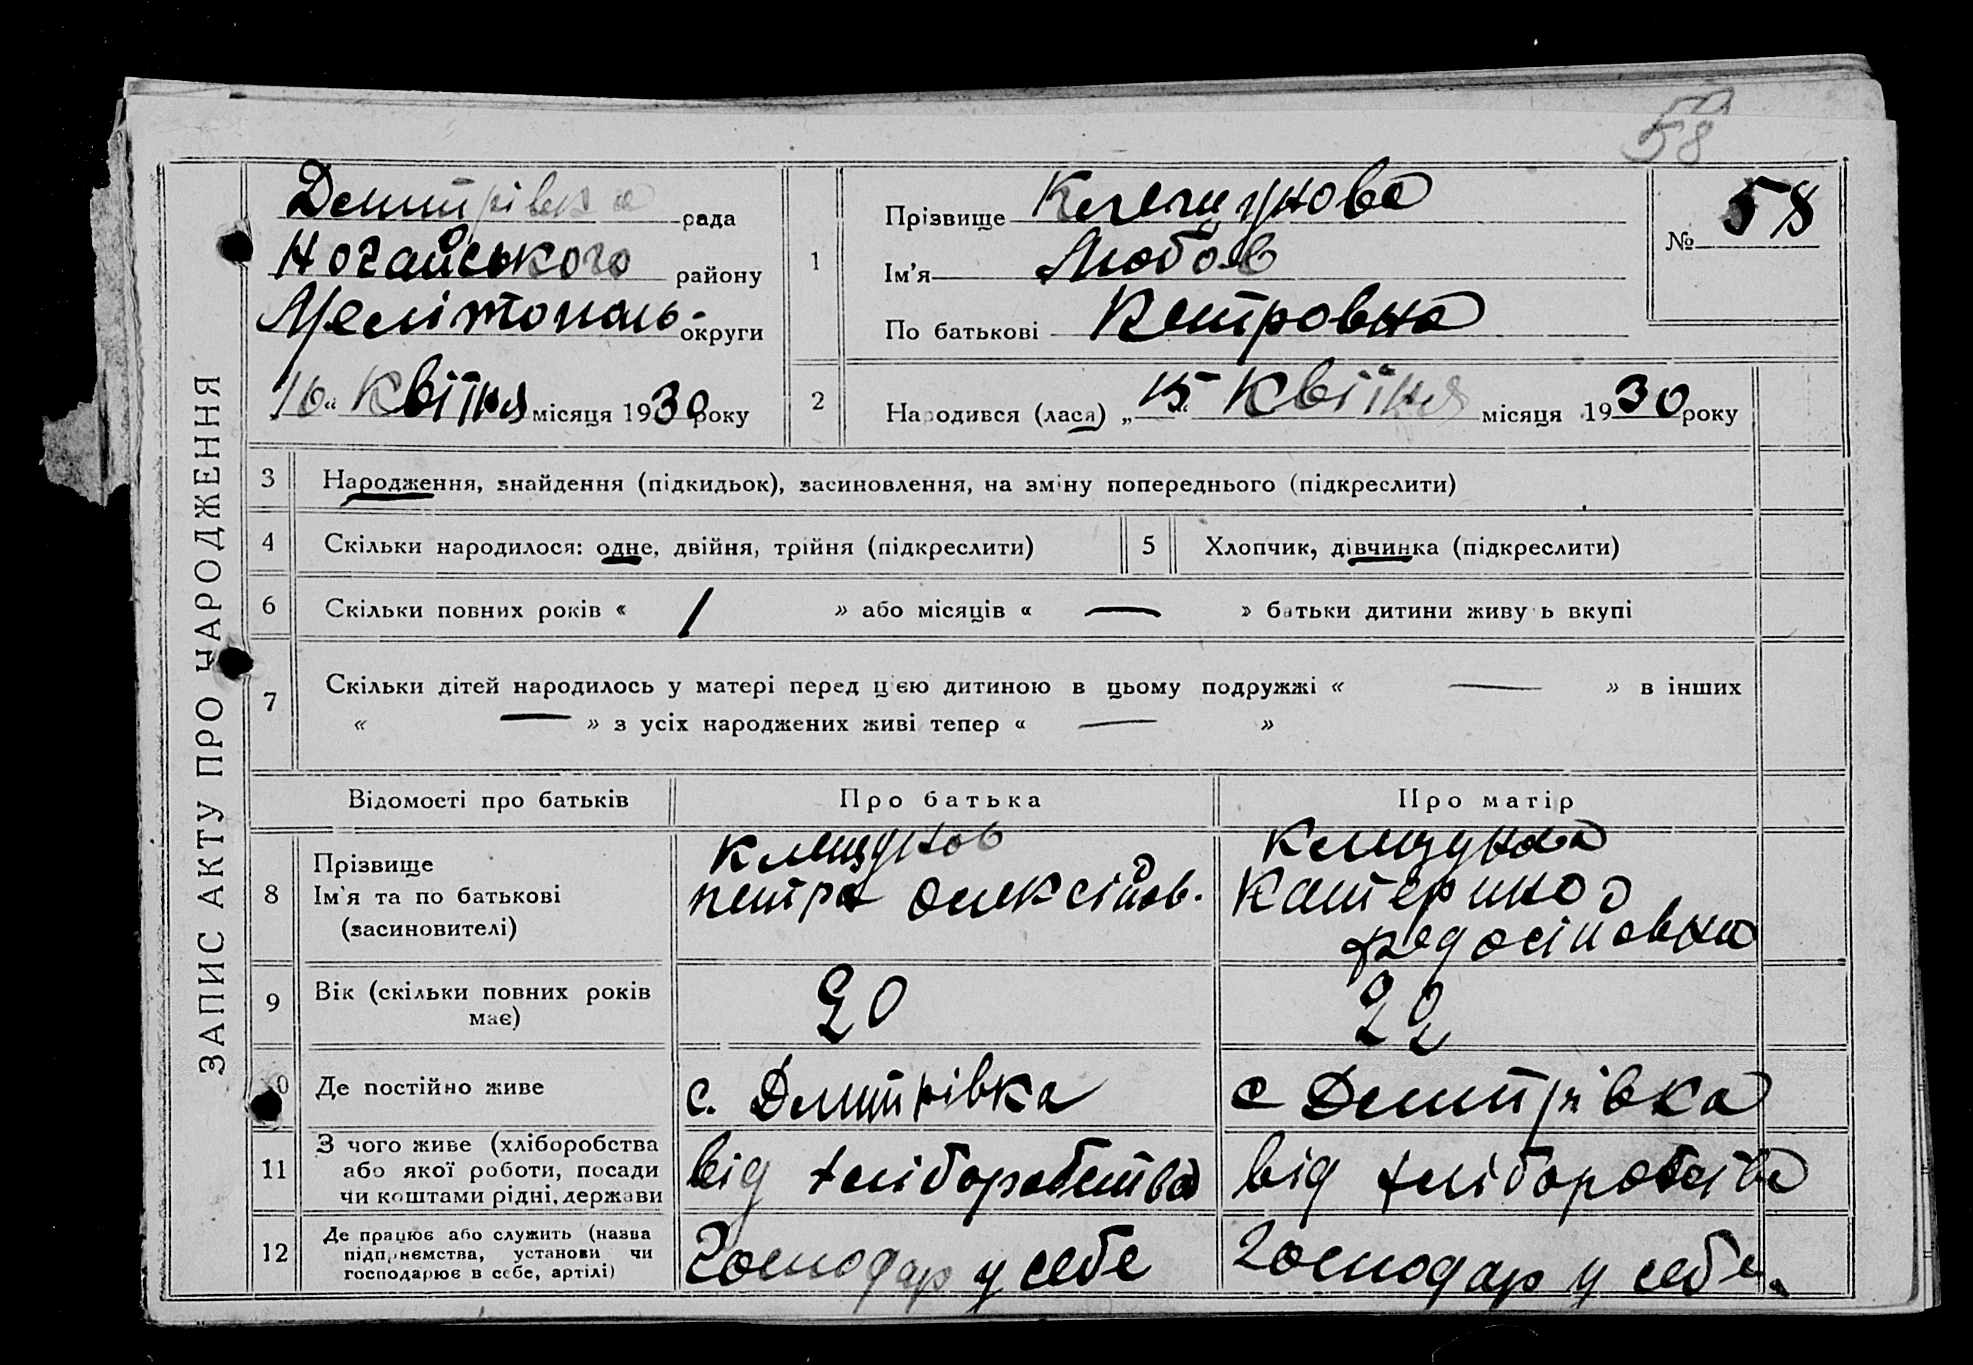 58
ЗАПИС АКТУ ПРО НАРОДЖЕННЯ
Дмитрівка рада
Ногайського району
Мелітополь- округи
16 « Квітня місяця 1930 року
1
Прізвище Клещунова
Ім'я Любов
По батькові Петровна
№ 58
2
Народився (лася) „ 15 “ Квітня місяця 1930 року
3 Народження, знайдення (підкидьок), засиновлення, на зміну попереднього (підкреслити)
4 Скільки народилося: одне, двійня, трійня (підкреслити) 5 Хлопчик, дівчинка (підкреслити)
6 Скільки повних років « 1 » або місяців « — » батьки дитини живуть вкупі
7 Скільки дітей народилось у матері перед цією дитиною в цьому подружжі « — » в інших
« — » з усіх народжених живі тепер « — »
Відомості про батьків Про батька Про матір
8
Прізвище
Ім'я та по батькові
(засиновителі)
Клещунов
Петра Олексійов.
Клещунова
Катерина
Федосіївна
9
Вік (скільки повних років
має)
20
22
10 Де постійно живе с. Дмитрівка с Дмитрівка
11
З чого живе (хліборобства
або якої роботи, посади
чи коштами рідні, держави
від хліборобства
від хліборобства
12
Де працює або служить (назва
підприємства, установи чи
господарює в себе, артілі)
Господар у себе
Господар у себе.